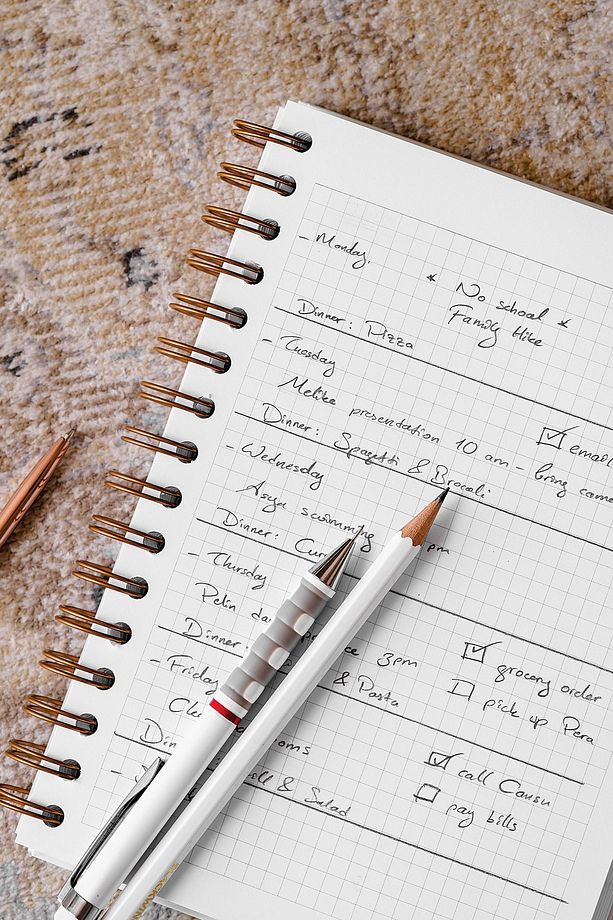 - Monday.
* No school *
Family Hike
Dinner: Pizza
- Tuesday
Melike presentation 10 am - bring came
☑ email
Dinner: Spagetti & Brocoli
- Wednesday
Asya swimming pm
Dinner: Cur
- Thursday
Pelin da ce 3pm
☑ grocery order
Dinner: & Pasta
☐ pick up Pera
- Friday
Cle oms
☑ call Cansu
☐ pay bills
Din ll & Salad